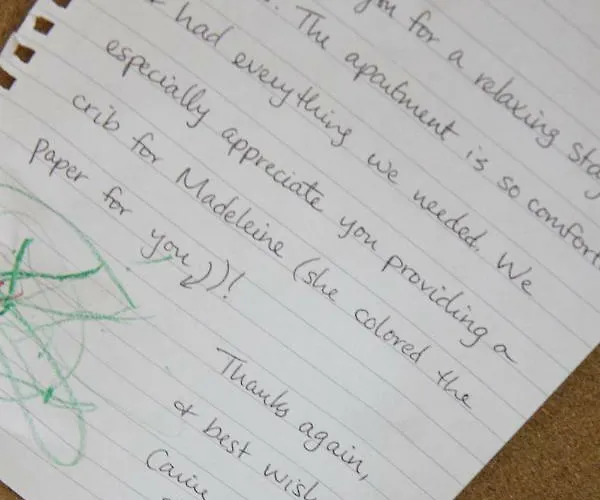 you for a relaxing stay
The apartment is so comfort
had everything we needed. We
especially appreciate you providing a
crib for Madeleine (she colored the
paper for you)!
Thanks again,
& best wish